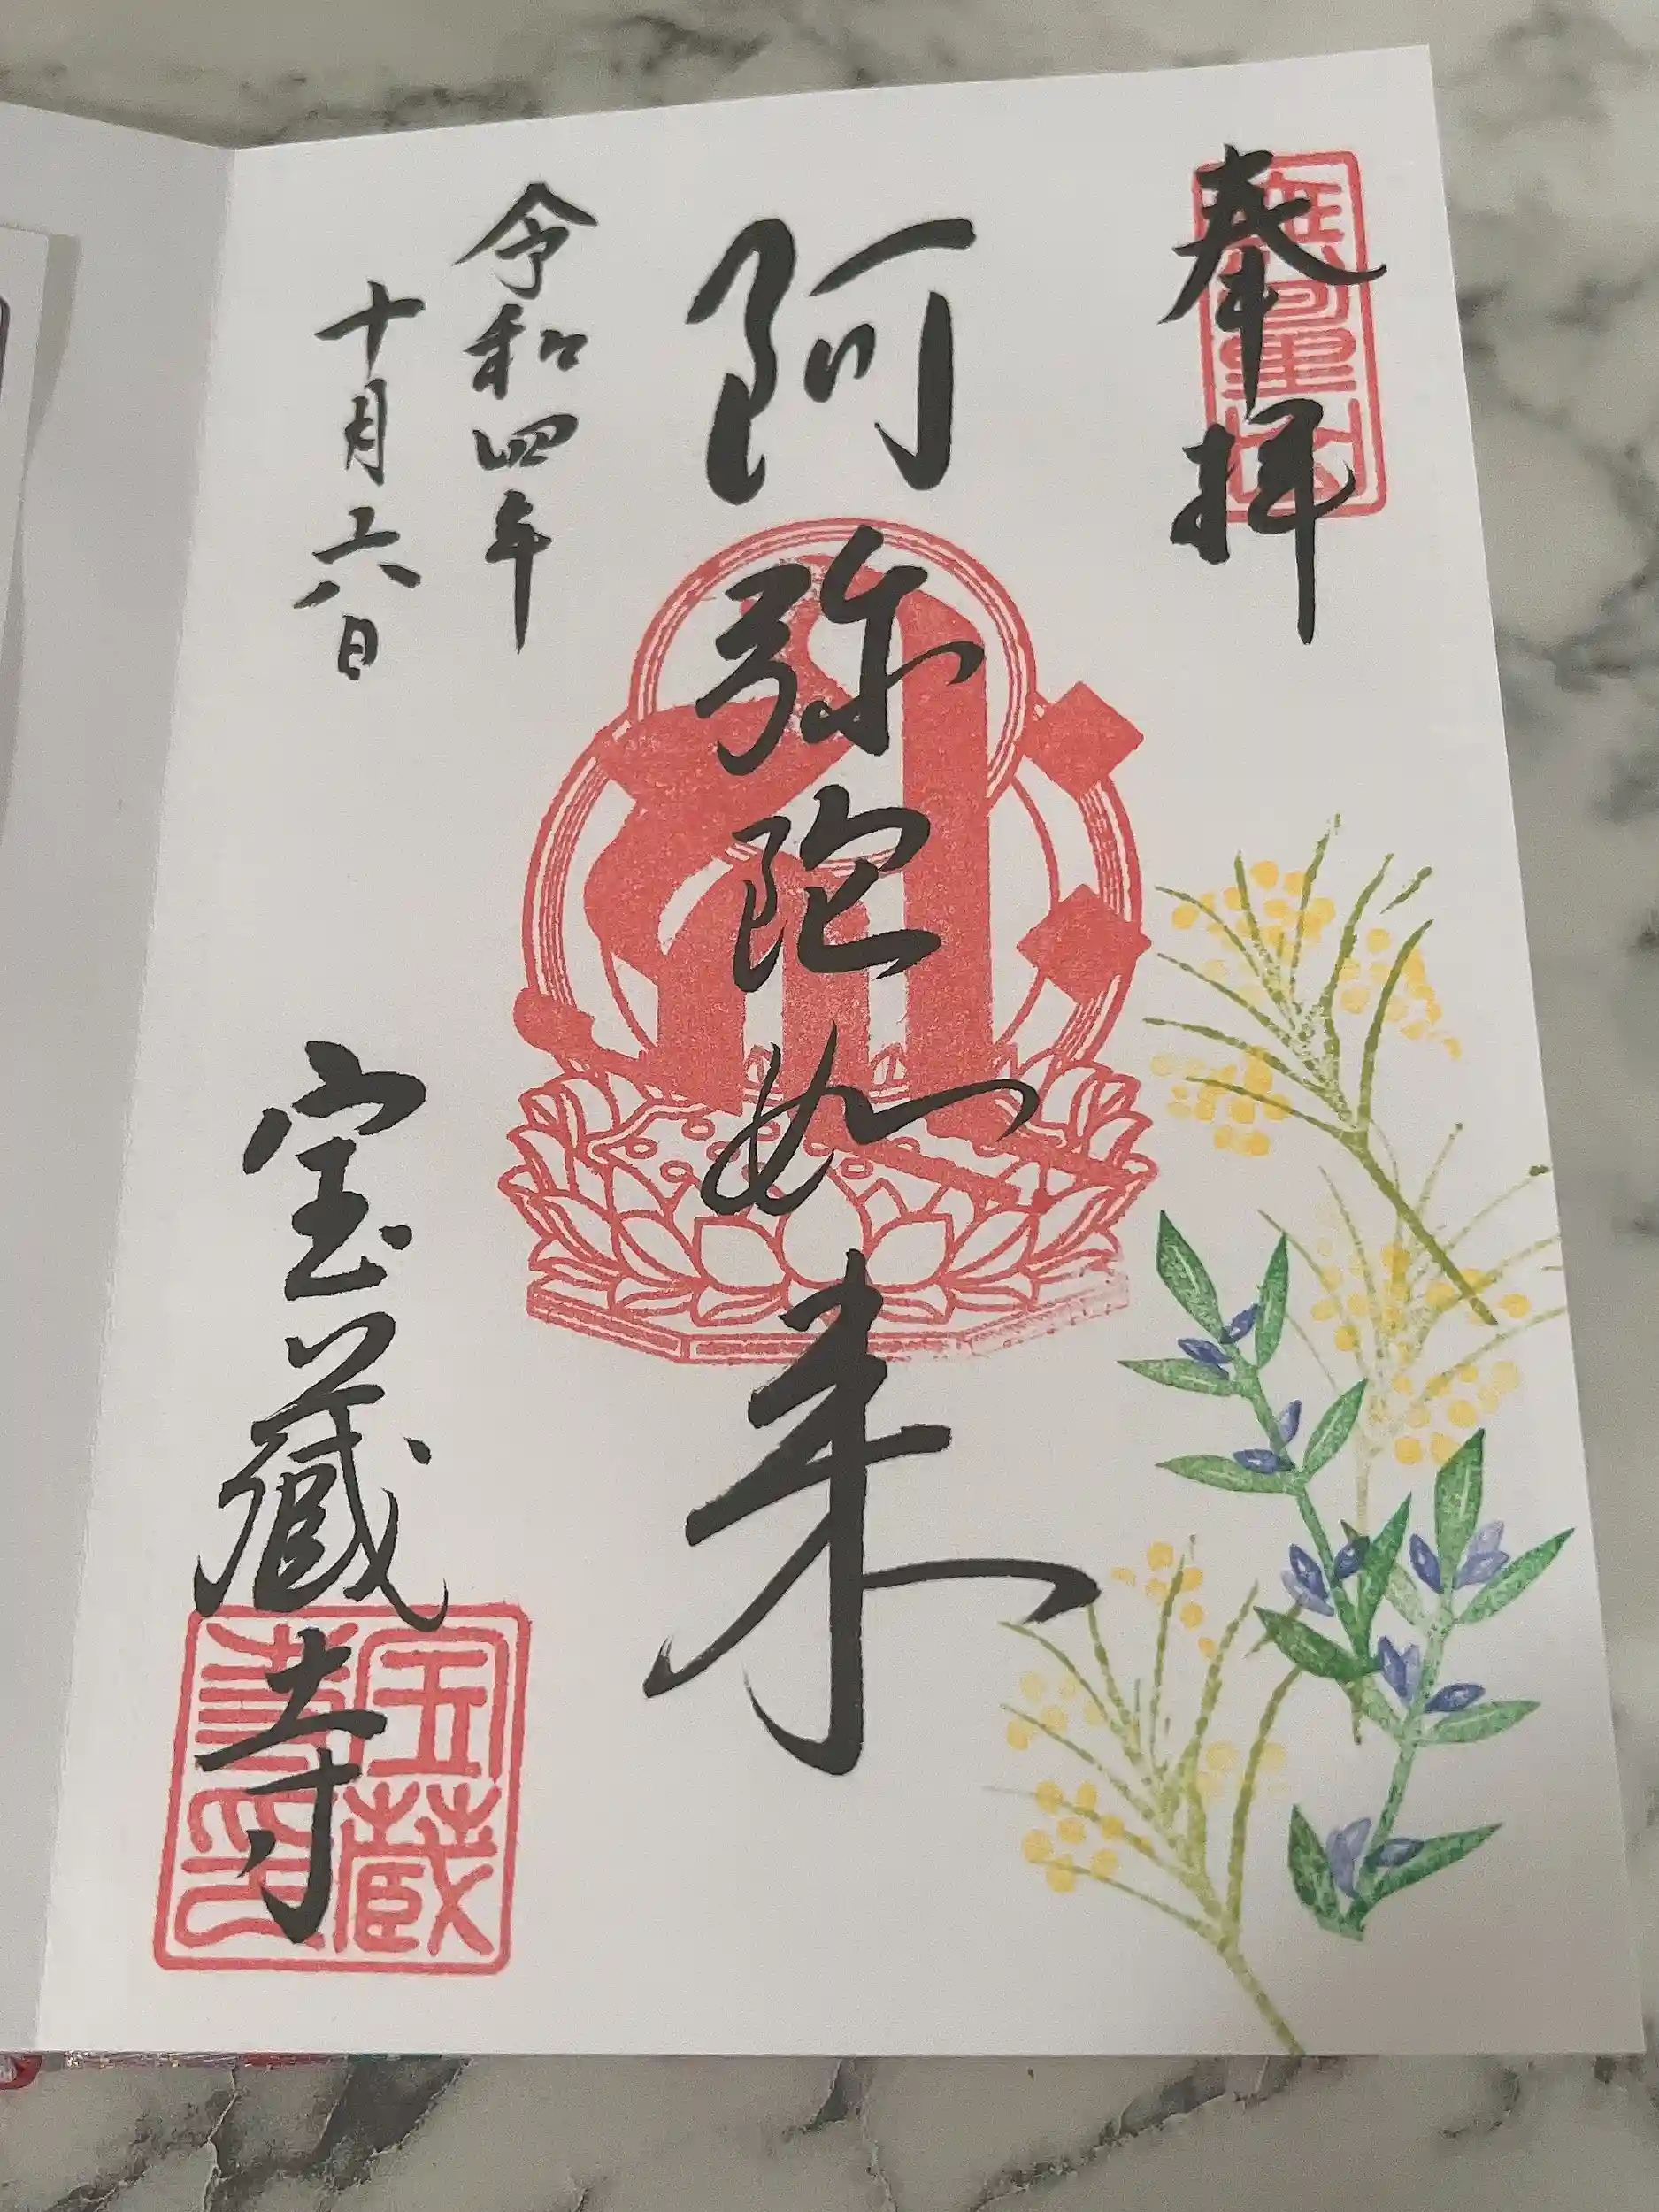 奉拝
阿弥陀如来
令和四年
十月六日
宝蔵寺
宝蔵
寺印